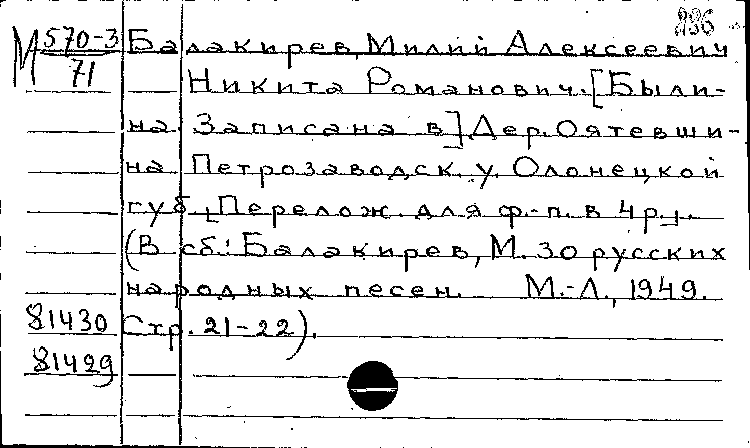 М 570-3 Балакирев, Милий Алексеевич
71 Никита Романович. [Были-
на. Записана в] Дер. Оятевщи-
на Петрозаводск. у. Олонецкой
губ. [Перелож. для ф.-п. в 4 р.].
(В сб.: Балакирев, М. 30 русских
народных песен. М.-Л., 1949.
81430 Стр. 21-22).
81429